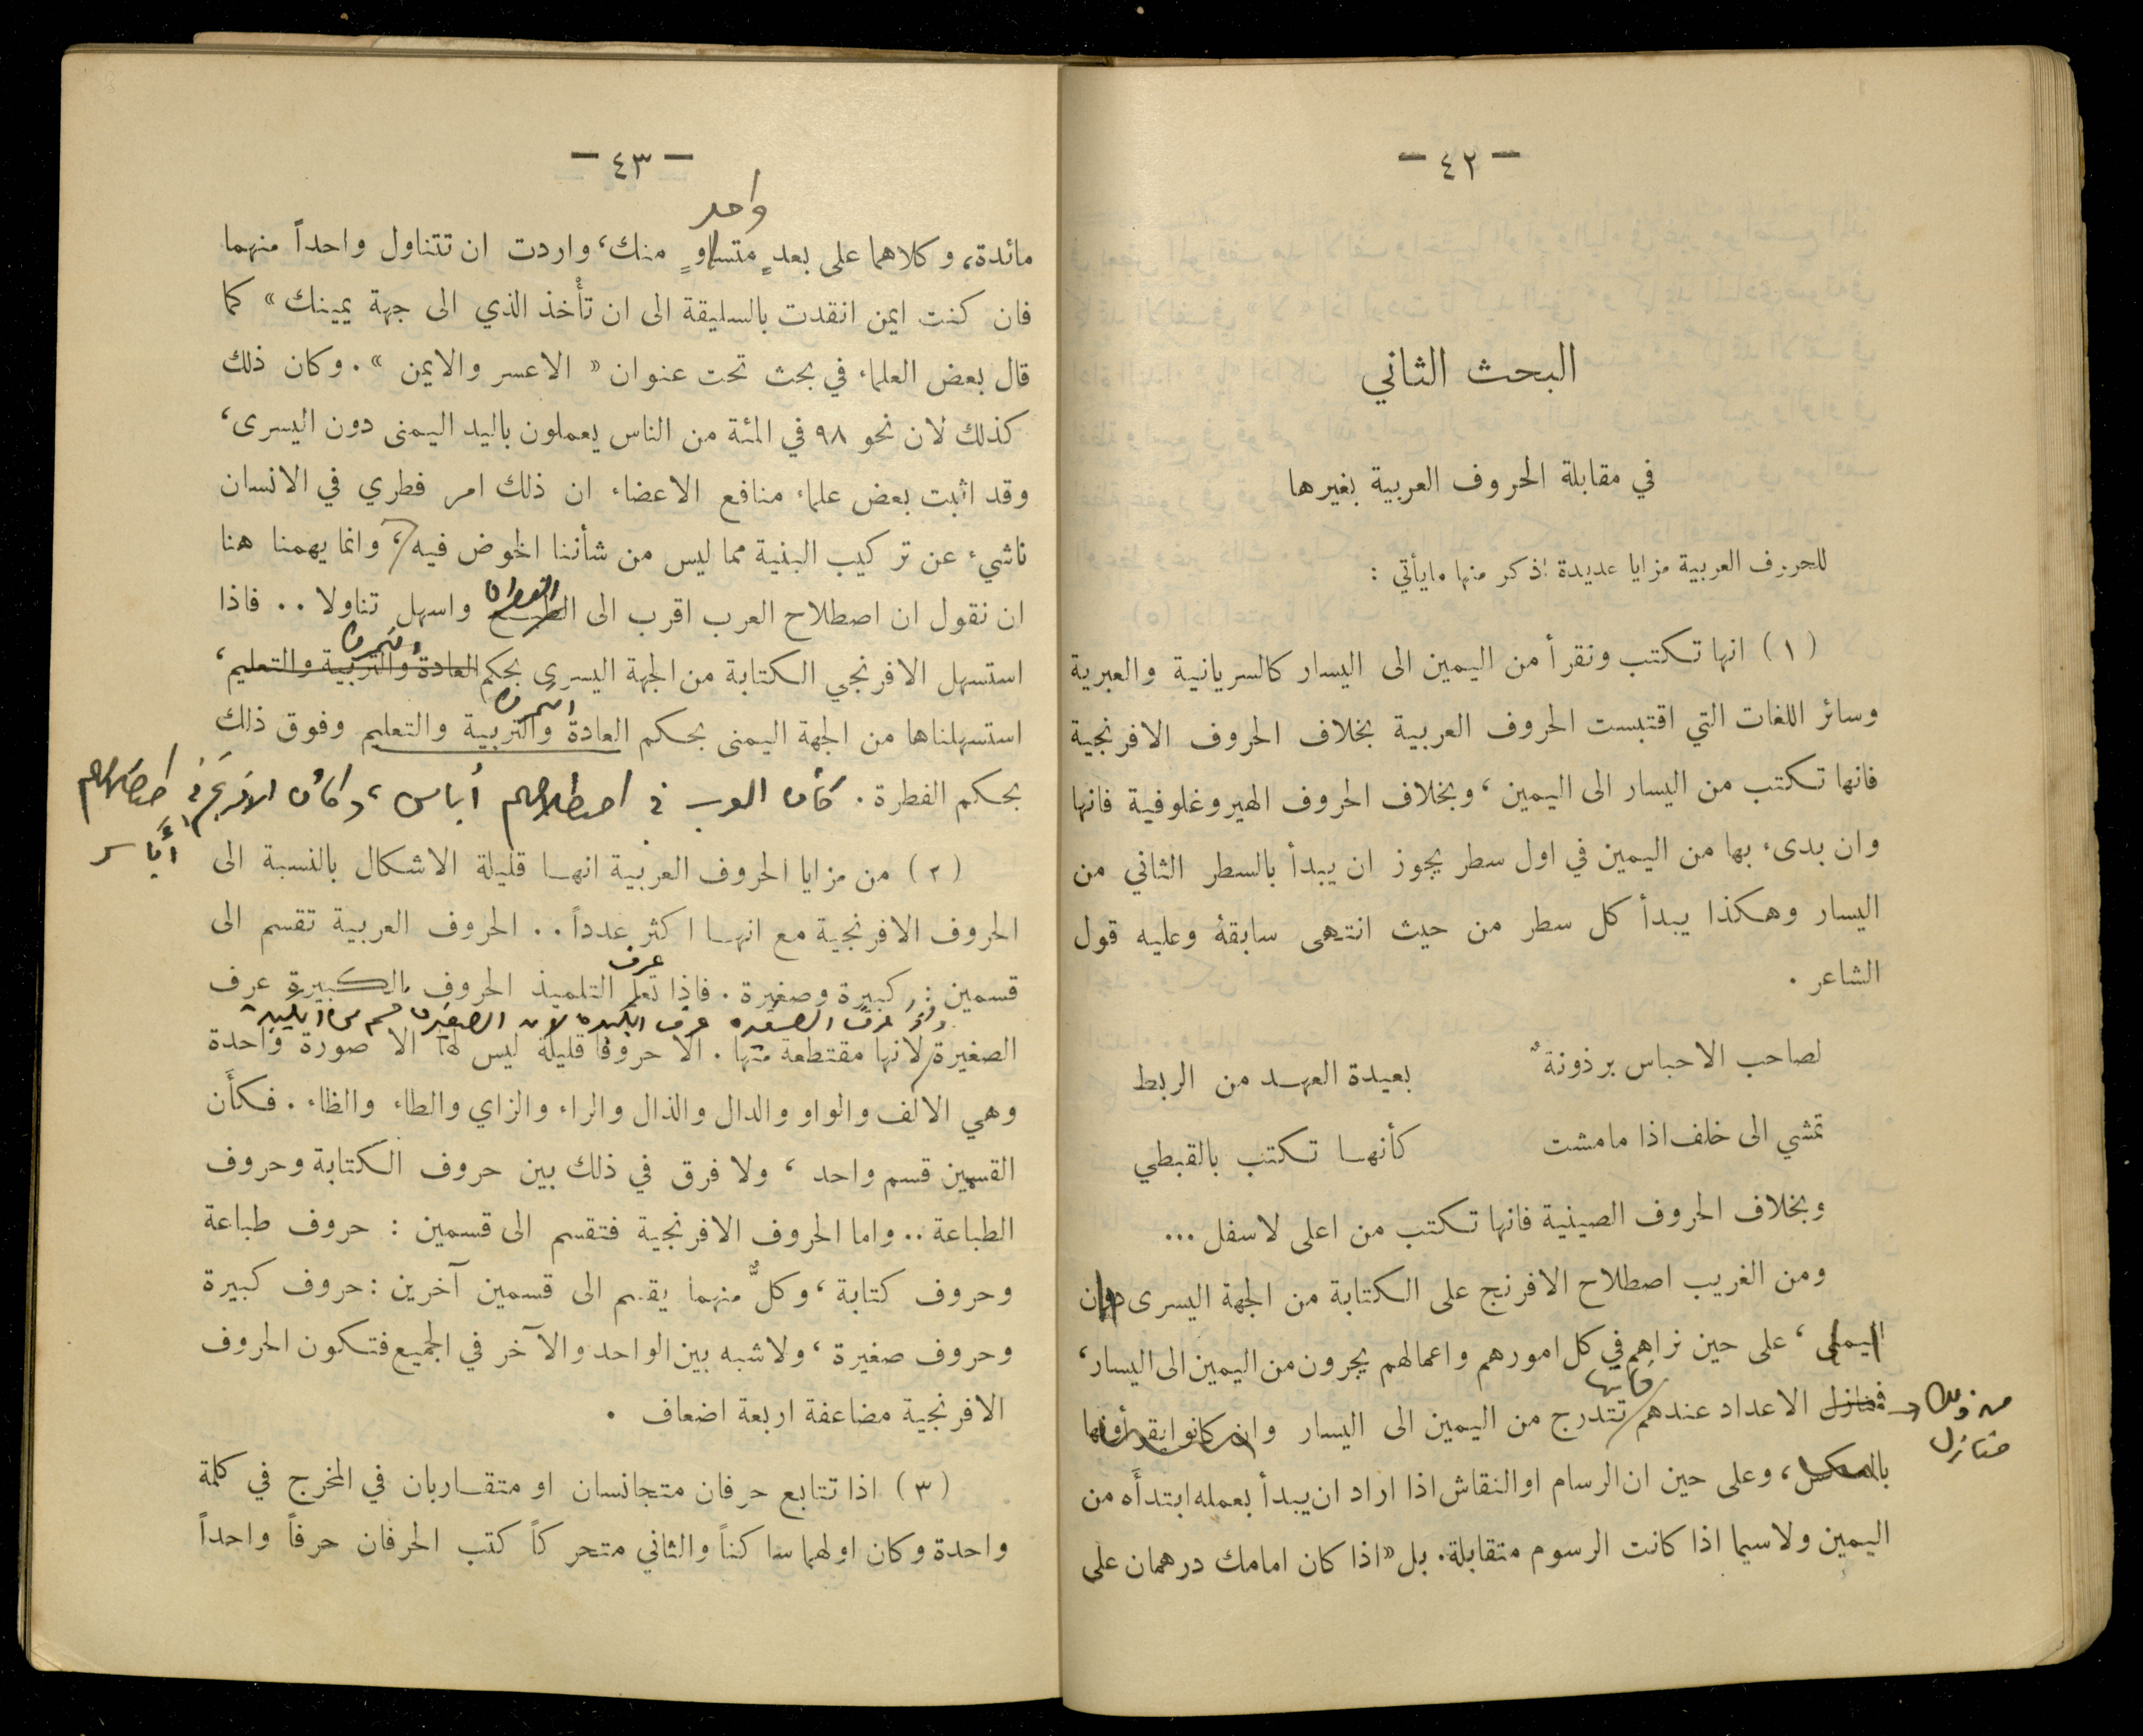 - ٤٢ -
البحث الثاني
في مقابلة الحروف العربية بغيرها
للحروف العربية مزايا عديدة اذكر منها مايأتي :
( ١ ) انها تكتب وتقرأ من اليمين الى اليسار كالسريانية والعبرية
وسائر اللغات التي اقتبست الحروف العربية بخلاف الحروف الافرنجية
فانها تكتب من اليسار الى اليمين ، وبخلاف الحروف الهيروغلوفية فانها
وان بدىء بها من اليمين في اول سطر يجوز ان يبدأ بالسطر الثاني من
اليسار وهكذا يبدأ كل سطر من حيث انتهى سابقهُ وعليه قول
الشاعر .
لصاحب الاحباس برذونةٌ بعيدة العهد من الربط
تمشي الى خلف اذا مامشت كأنها تكتب بالقبطي
وبخلاف الحروف الصينية فانها تكتب من اعلى لاسفل ...
ومن الغريب اصطلاح الافرنج على الكتابة من الجهة اليسرى دون
اليمنى ، على حين نراهم في كل امورهم واعمالهم يجرون من اليمين الى اليسار ،
فانها
فمنازل الاعداد عندهم تتدرج من اليمين الى اليسار وان كانوا يقرأونها
من ذلك
منازل
بالعكس ، وعلى حين ان الرسام او النقاش اذا اراد ان يبدأ بعمله ابتدأَه من
اليمين ولاسيما اذا كانت الرسوم متقابلة. بل «اذا كان امامك درهمان على
- ٤٣ -
واحد
مائدة، وكلاهما على بعدٍ متساوٍ منك، واردت ان تتناول واحداً منهما
فان كنت ايمن انقدت بالسليقة الى ان تأْخذ الذي الى جهة يمينك » كما
قال بعض العلماء في بحث تحت عنوان « الاعسر والايمن » . وكان ذلك
كذلك لان نحو ٩٨ في المئة من الناس يعملون باليد اليمنى دون اليسرى ،
وقد اثبت بعض علماء منافع الاعضاء ان ذلك امر فطري في الانسان
ناشيء عن تركيب البنية مما ليس من شأننا الخوض فيه ، وانما يهمنا هنا
ان نقول ان اصطلاح العرب اقرب الى الطبع واسهل تناولا .. فاذا
استسهل الافرنجي الكتابة من الجهة اليسرى بحكم العادة والتربية والتعليم ،
استسهلناها من الجهة اليمنى بحكم العادة والتربية والتعليم وفوق ذلك
بحكم الفطرة . كأن العرب في اصطلاحهم أيامن ، وكأن الافرنج في اصطلاحهم
أياسر
( ٢ ) من مزايا الحروف العربية انها قليلة الاشكال بالنسبة الى
الحروف الافرنجية مع انها اكثر عدداً .. الحروف العربية تقسم الى
عرف
قسمين : كبيرة وصغيرة . فاذا تعلم التلميذ الحروف الكبيرة عرف
عرف الصغيرة عرف الكبيرة لان الصغيرة قسم من الكبيرة
الصغيرة لانها مقتطعة منها . الا حروفا قليلة ليس لها الا صورة واحدة
وهي الالف والواو والدال والذال والراء والزاي والطاء والظاء . فكأَن
القسمين قسم واحد ، ولا فرق في ذلك بين حروف الكتابة وحروف
الطباعة .. واما الحروف الافرنجية فتقسم الى قسمين : حروف طباعة
وحروف كتابة ، وكلٌّ منهما يقسم الى قسمين آخرين : حروف كبيرة
وحروف صغيرة ، ولاشبه بين الواحد والآخر في الجميع فتكون الحروف
الافرنجية مضاعفة اربعة اضعاف .
( ٣ ) اذا تتابع حرفان متجانسان او متقاربان في المخرج في كلمة
واحدة وكان اولهما ساكناً والثاني متحركاً كتب الحرفان حرفاً واحداً